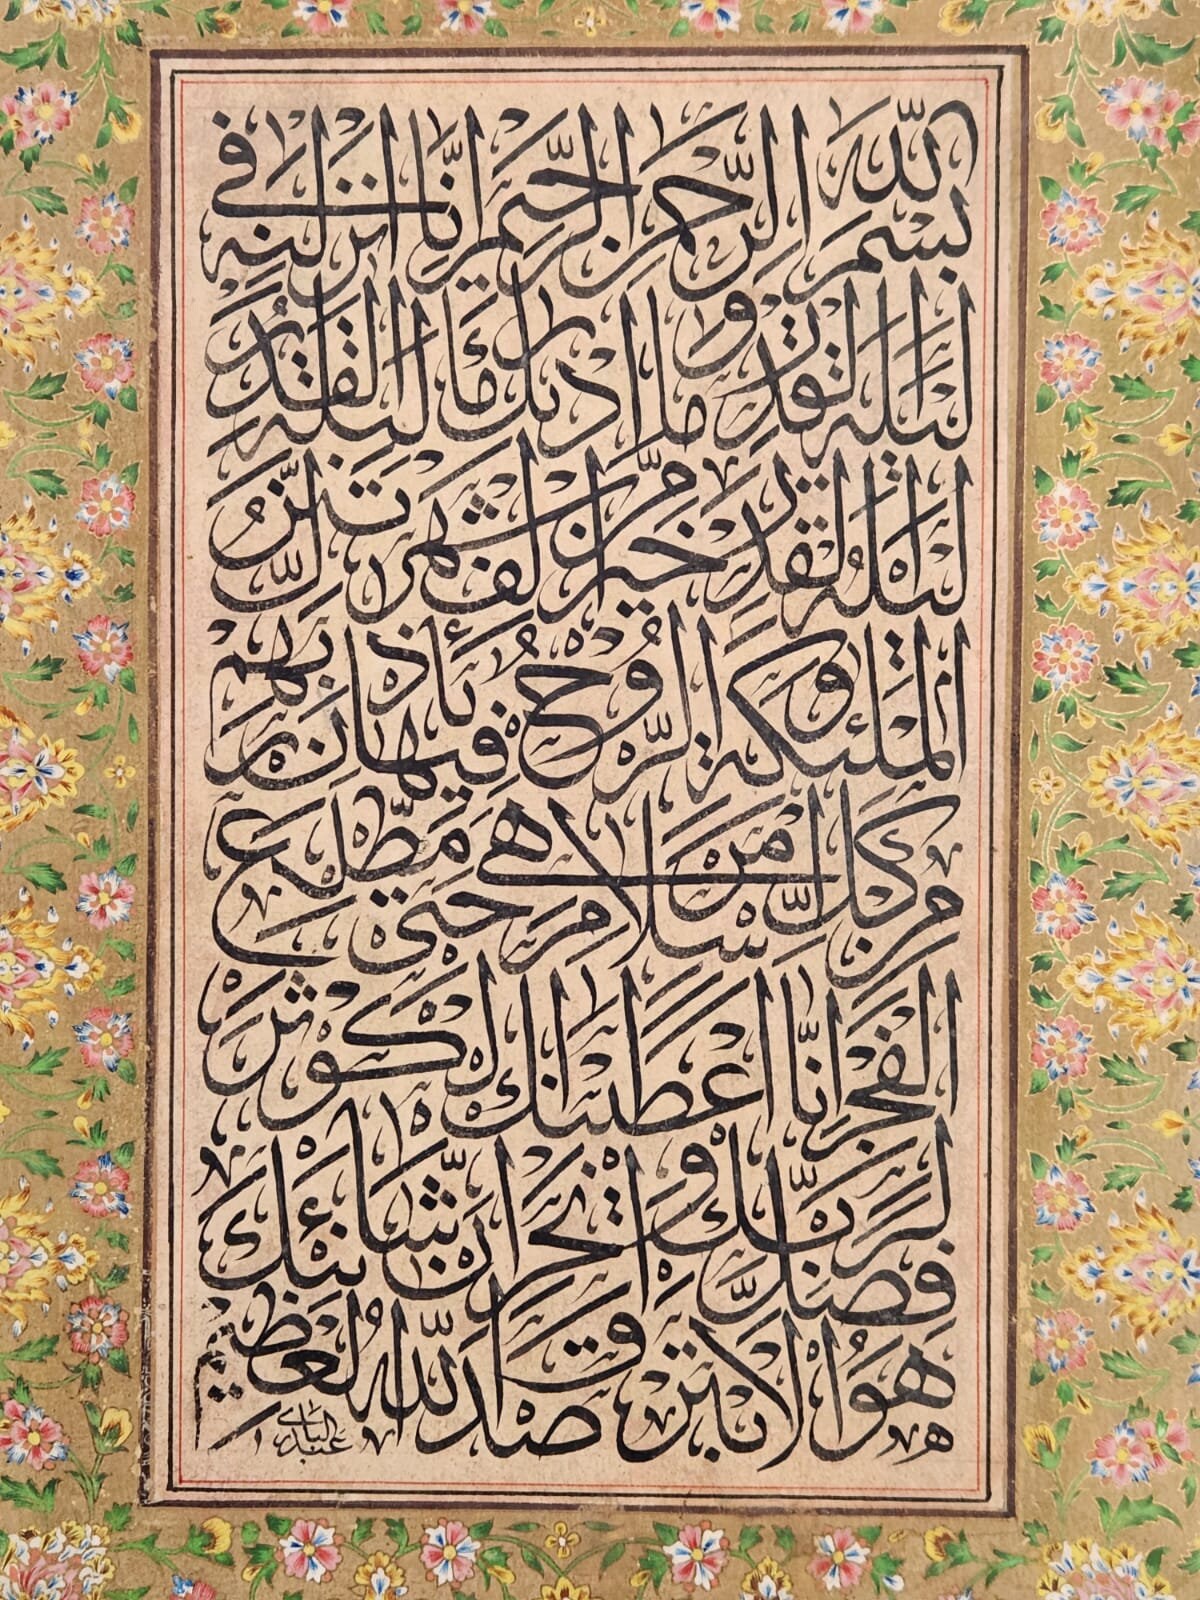 بسم الله الرحمن الرحيم انا انزلنه في
ليلة القدر وما ادريك ما ليلة القدر
ليلة القدر خير من الف شهر تنزل
الملئكة والروح فيها بأذن ربهم
من كل امر سلام هي حتى مطلع
الفجر انا اعطينك الكوثر
فصل لربك وانحر ان شانئك
هو الابتر صدق الله العظيم
عبدالباقي